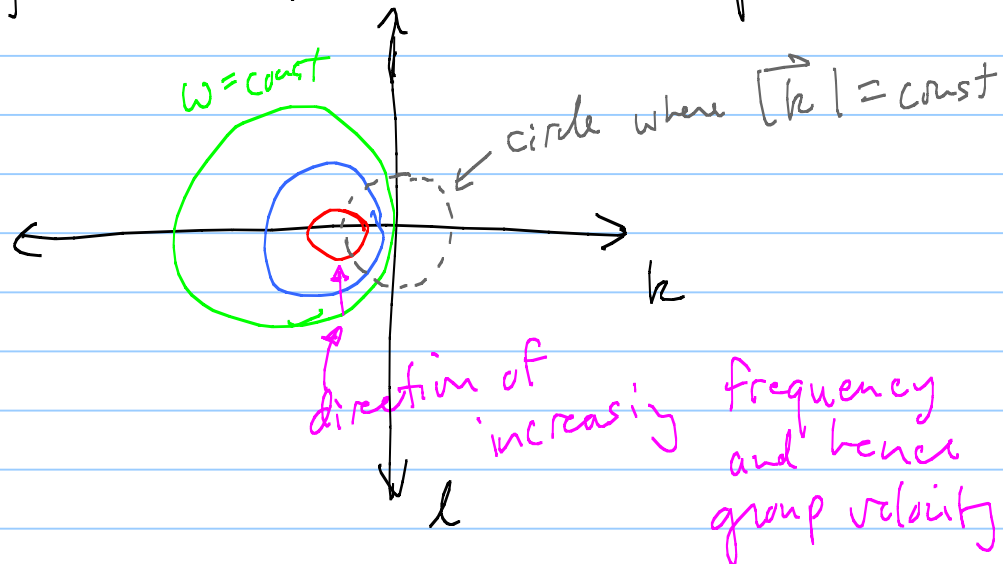 ω = const
circle where |k⃗| = const
k
direction of
increasiy frequency
and hence
group velocity
l